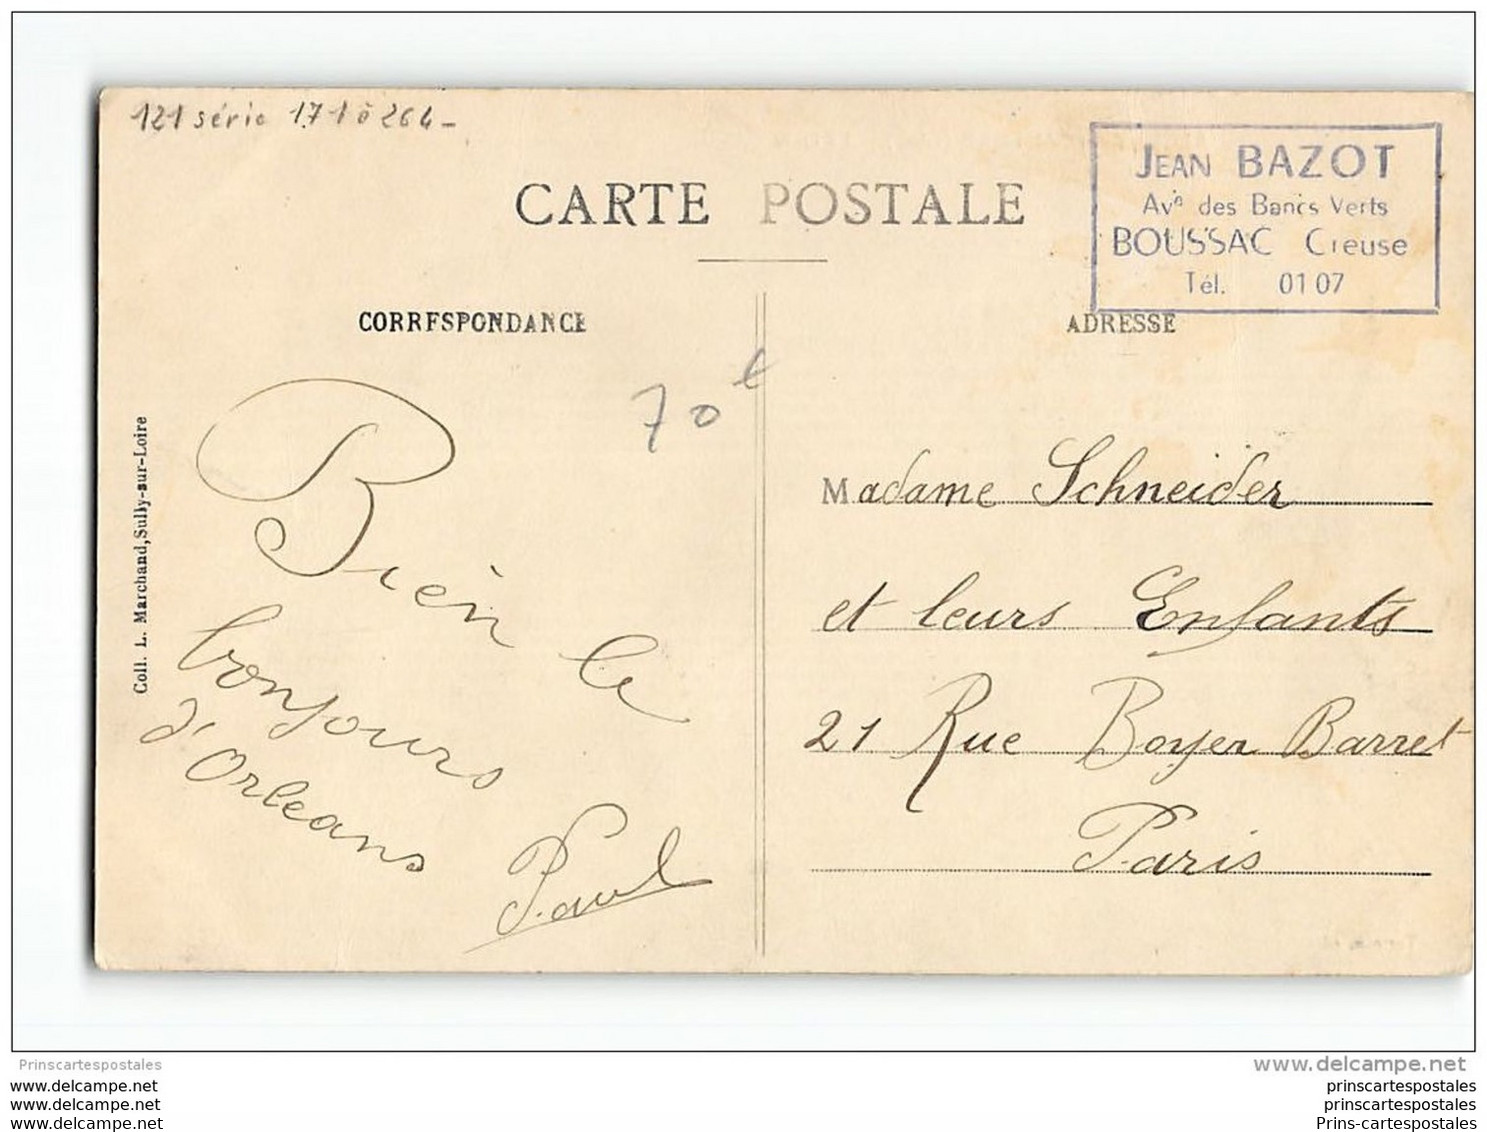 121 série 171 à 264 -
CARTE POSTALE
JEAN BAZOT
Avⁿ des Bancs Verts
BOUSSAC Creuse
Tél. 01 07
CORRESPONDANCE
ADRESSE
70 €
Coll. L. Marchand, Sully-sur-Loire
Bien le
bonjours
d'Orleans
Paul
Madame Schneider
et leurs Enfants
21 Rue Boyer Barret
Paris
Prinscartespostales
www.delcampe.net
www.delcampe.net
www.delcampe.net
www.delcampe.net
prinscartespostales
prinscartespostales
Prins-cartespostales